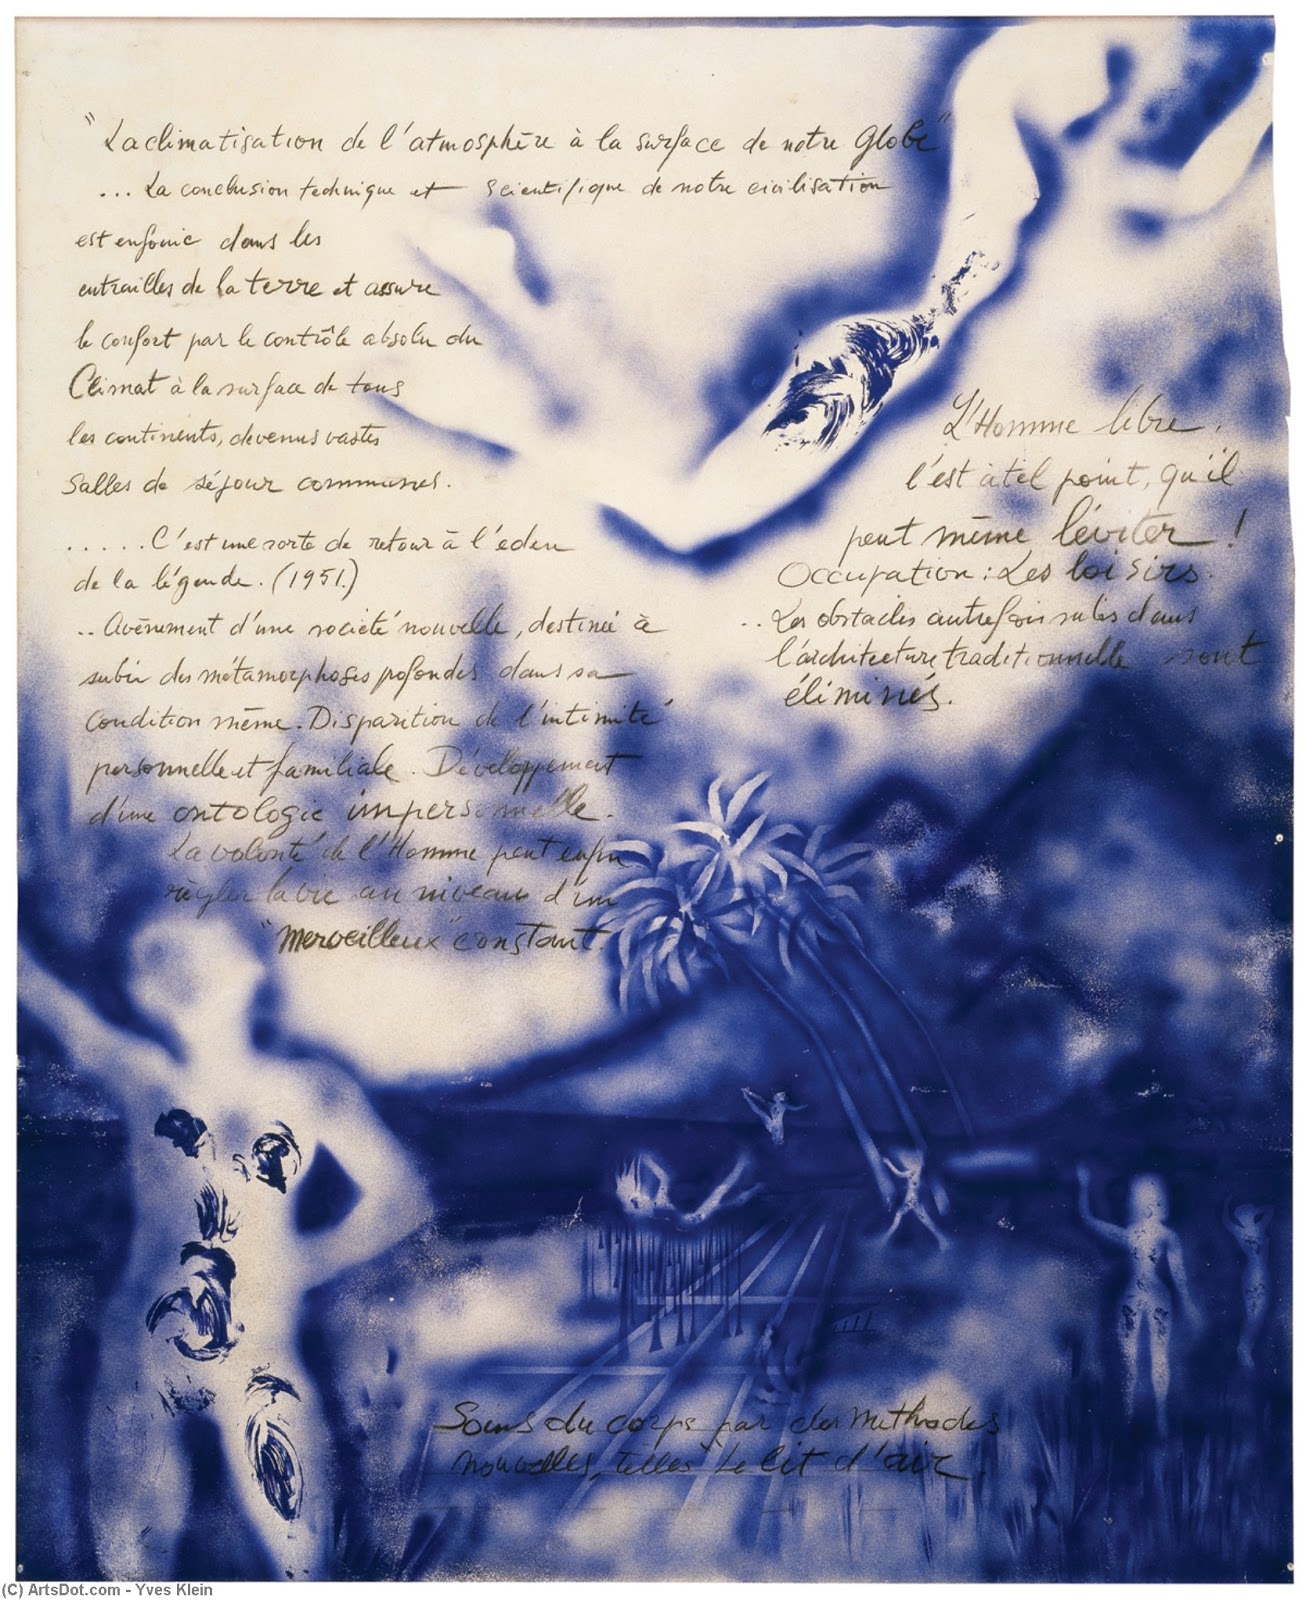 "La climatisation de l'atmosphère à la surface de notre Globe"
... La conclusion technique et scientifique de notre civilisation
est enfouie dans les
entrailles de la terre et assure
le confort par le contrôle absolu du
Climat à la surface de tous
les continents, devenus vastes
salles de séjour communes.
.....C'est une sorte de retour à l'eden
de la légende. (1951.)
.. Avènement d'une société nouvelle, destinée à
subir des métamorphoses profondes dans sa
condition même. Disparition de l'intimité
personnelle et familiale. Développement
d'une ontologie impersonnelle.
La volonté de l'Homme peut enfin
règler la vie au niveau d'un
"merveilleux" constant.
L'Homme libre,
l'est à tel point, qu'il
peut même léviter!
Occupation: Les loisirs.
.. Les obstacles autrefois subis dans
l'architecture traditionnelle sont
éliminés.
Soins du corps par des méthodes
nouvelles, telles le lit d'air.
(C) ArtsDot.com - Yves Klein